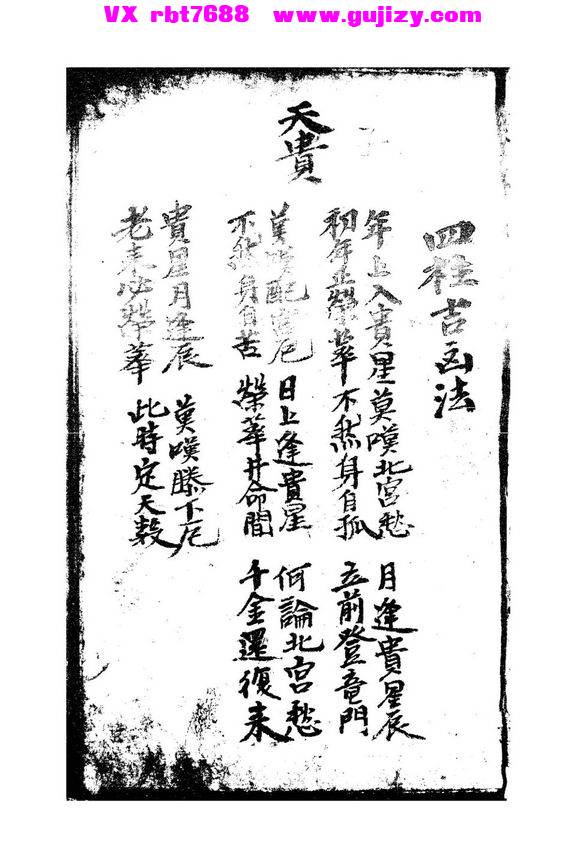 VX rbt7688 www.gujizy.com
四柱吉凶法
天貴
年上入貴星莫嘆北宮愁
初年並榮華不然身自孤
月逢貴星辰
立前登竜門
莫嘆配宮厄
不然身自苦
日上逢貴星
榮華井命間
何論北宮愁
千金還復來
貴星月逢辰
老來必榮華
莫嘆膝下厄
此時定天数